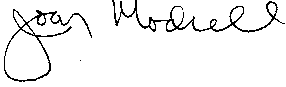 Joan Modrell